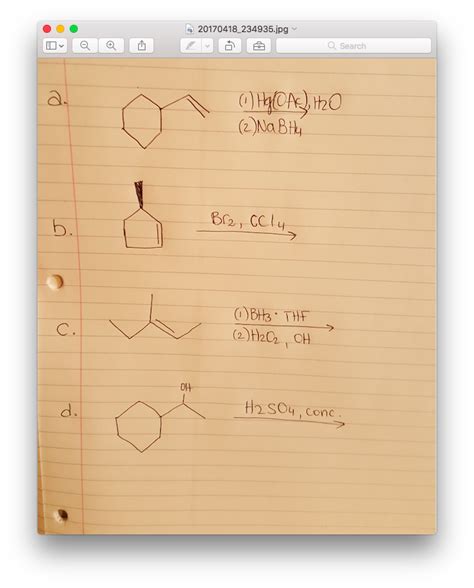 20170418_234935.jpg
Search
a.
(1) Hg(OAc)2, H2O
(2) NaBH4
b.
Br2, CCl4
c.
(1) BH3 · THF
(2) H2O2, OH
d.
OH
H2SO4, conc.